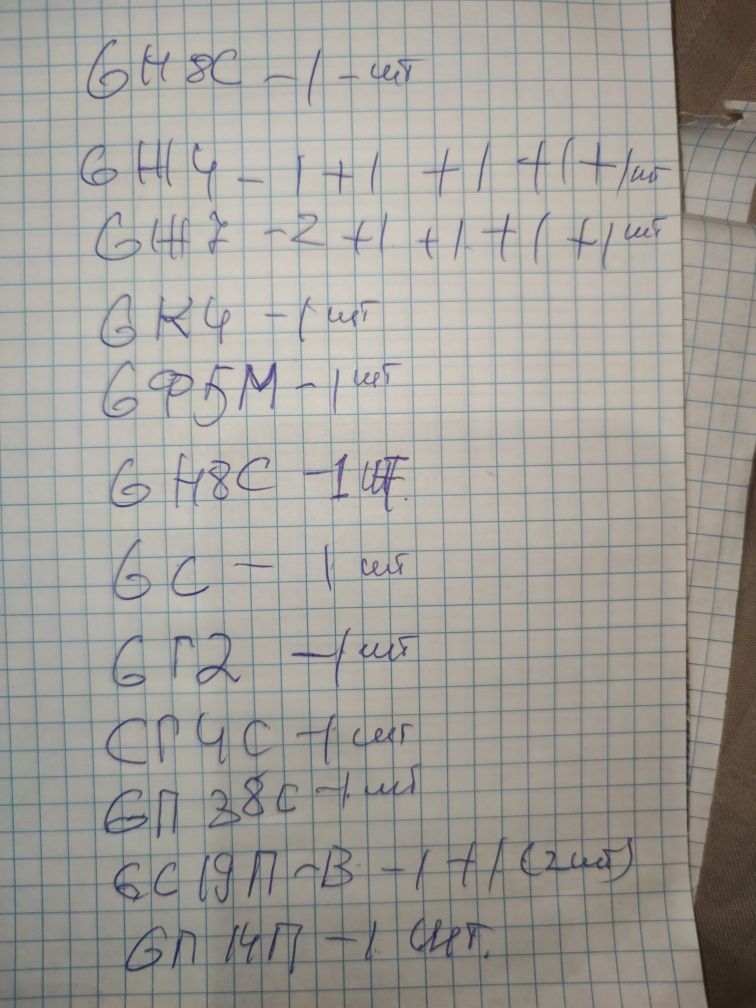 6Н8С - 1 - шт
6Ж4 - 1 + 1 + 1 + 1 + 1 шт
6Ж7 - 2 + 1 + 1 + 1 + 1 шт
6К4 - 1 шт
6Ф5М - 1 шт
6Н8С - 1 шт.
6С - 1 шт
6Г2 - 1 шт
СГ4С - 1 шт
6П 38С - 1 шт
6С19П - В - 1 + 1 (2 шт)
6П 14П - 1 шт.